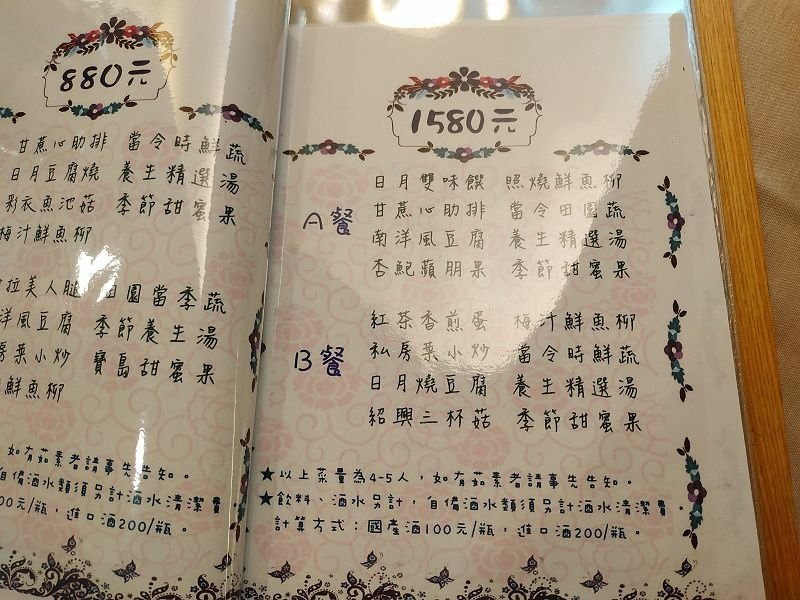 880元
甘蔗心肋排 當令時鮮蔬
日月豆腐燒 養生精選湯
彩衣魚池菇 季節甜蜜果
梅汁鮮魚柳
拉美人腿 田園當季蔬
洋風豆腐 季節養生湯
房菜小炒 寶島甜蜜果
鮮魚柳
如有茹素者請事先告知。
自備酒水類須另計酒水清潔費
00元/瓶,進口酒200/瓶。
1580元
A餐
日月雙味饌 照燒鮮魚柳
甘蔗心肋排 當令田園蔬
南洋風豆腐 養生精選湯
杏鮑蘋朋果 季節甜蜜果
B餐
紅茶香煎蛋 梅汁鮮魚柳
私房菜小炒 當令時鮮蔬
日月燒豆腐 養生精選湯
紹興三杯菇 季節甜蜜果
★以上菜量為4-5人,如有茹素者請事先告知。
★飲料、酒水另計,自備酒水類須另計酒水清潔費。
計算方式:國產酒100元/瓶,進口酒200/瓶。